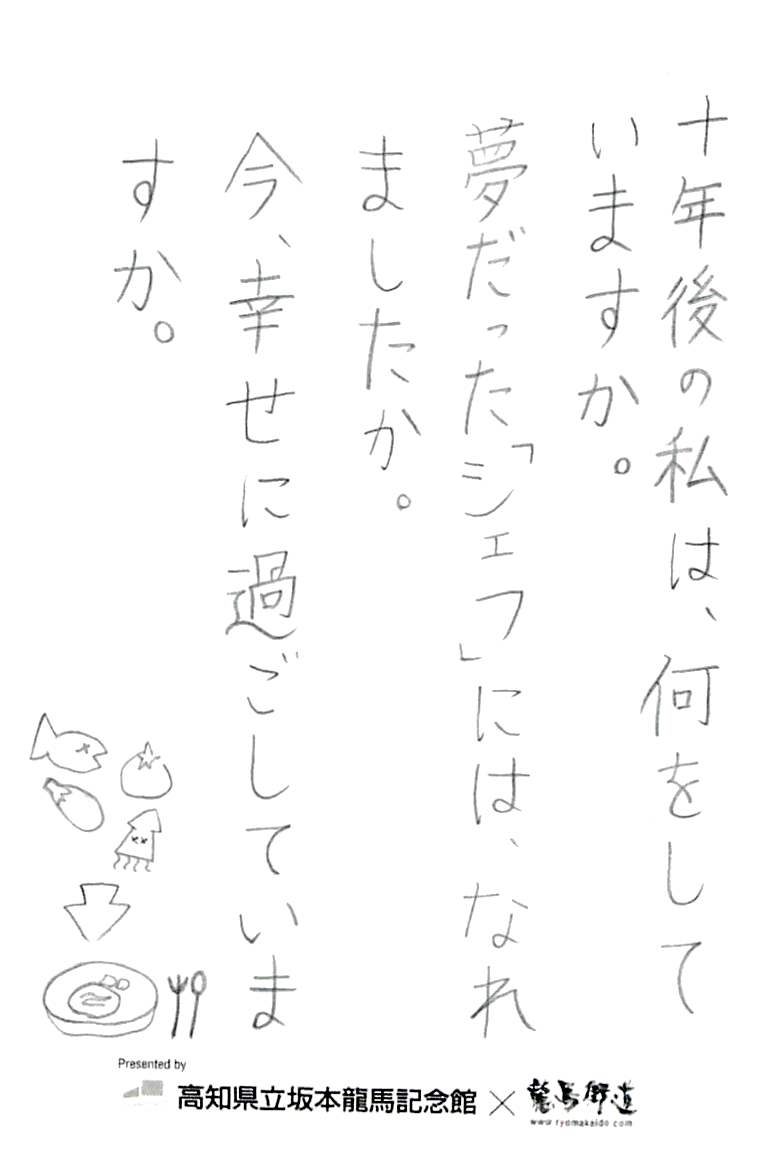 十年後の私は、何をして
いますか。
夢だった「シェフ」には、なれ
ましたか。
今、幸せに過ごしていま
すか。
Presented by
高知県立坂本龍馬記念館×龍馬街道
www.ryomakaido.com